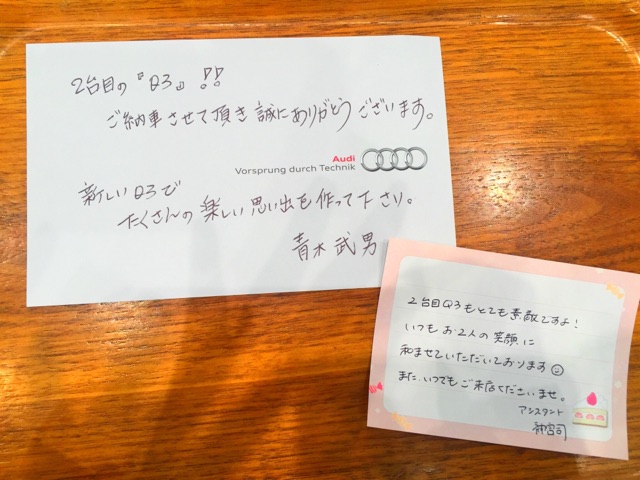 2台目の『Q3』!!
ご納車させて頂き誠にありがとうございます。
Audi
Vorsprung durch Technik
新しいQ3で
たくさんの楽しい思い出を作って下さい。
青木武男
2台目Q3もとても素敵ですよ!
いつもお2人の笑顔に
和ませていただいております☺
また、いつでもご来店くださいませ。
アシスタント
神宮司